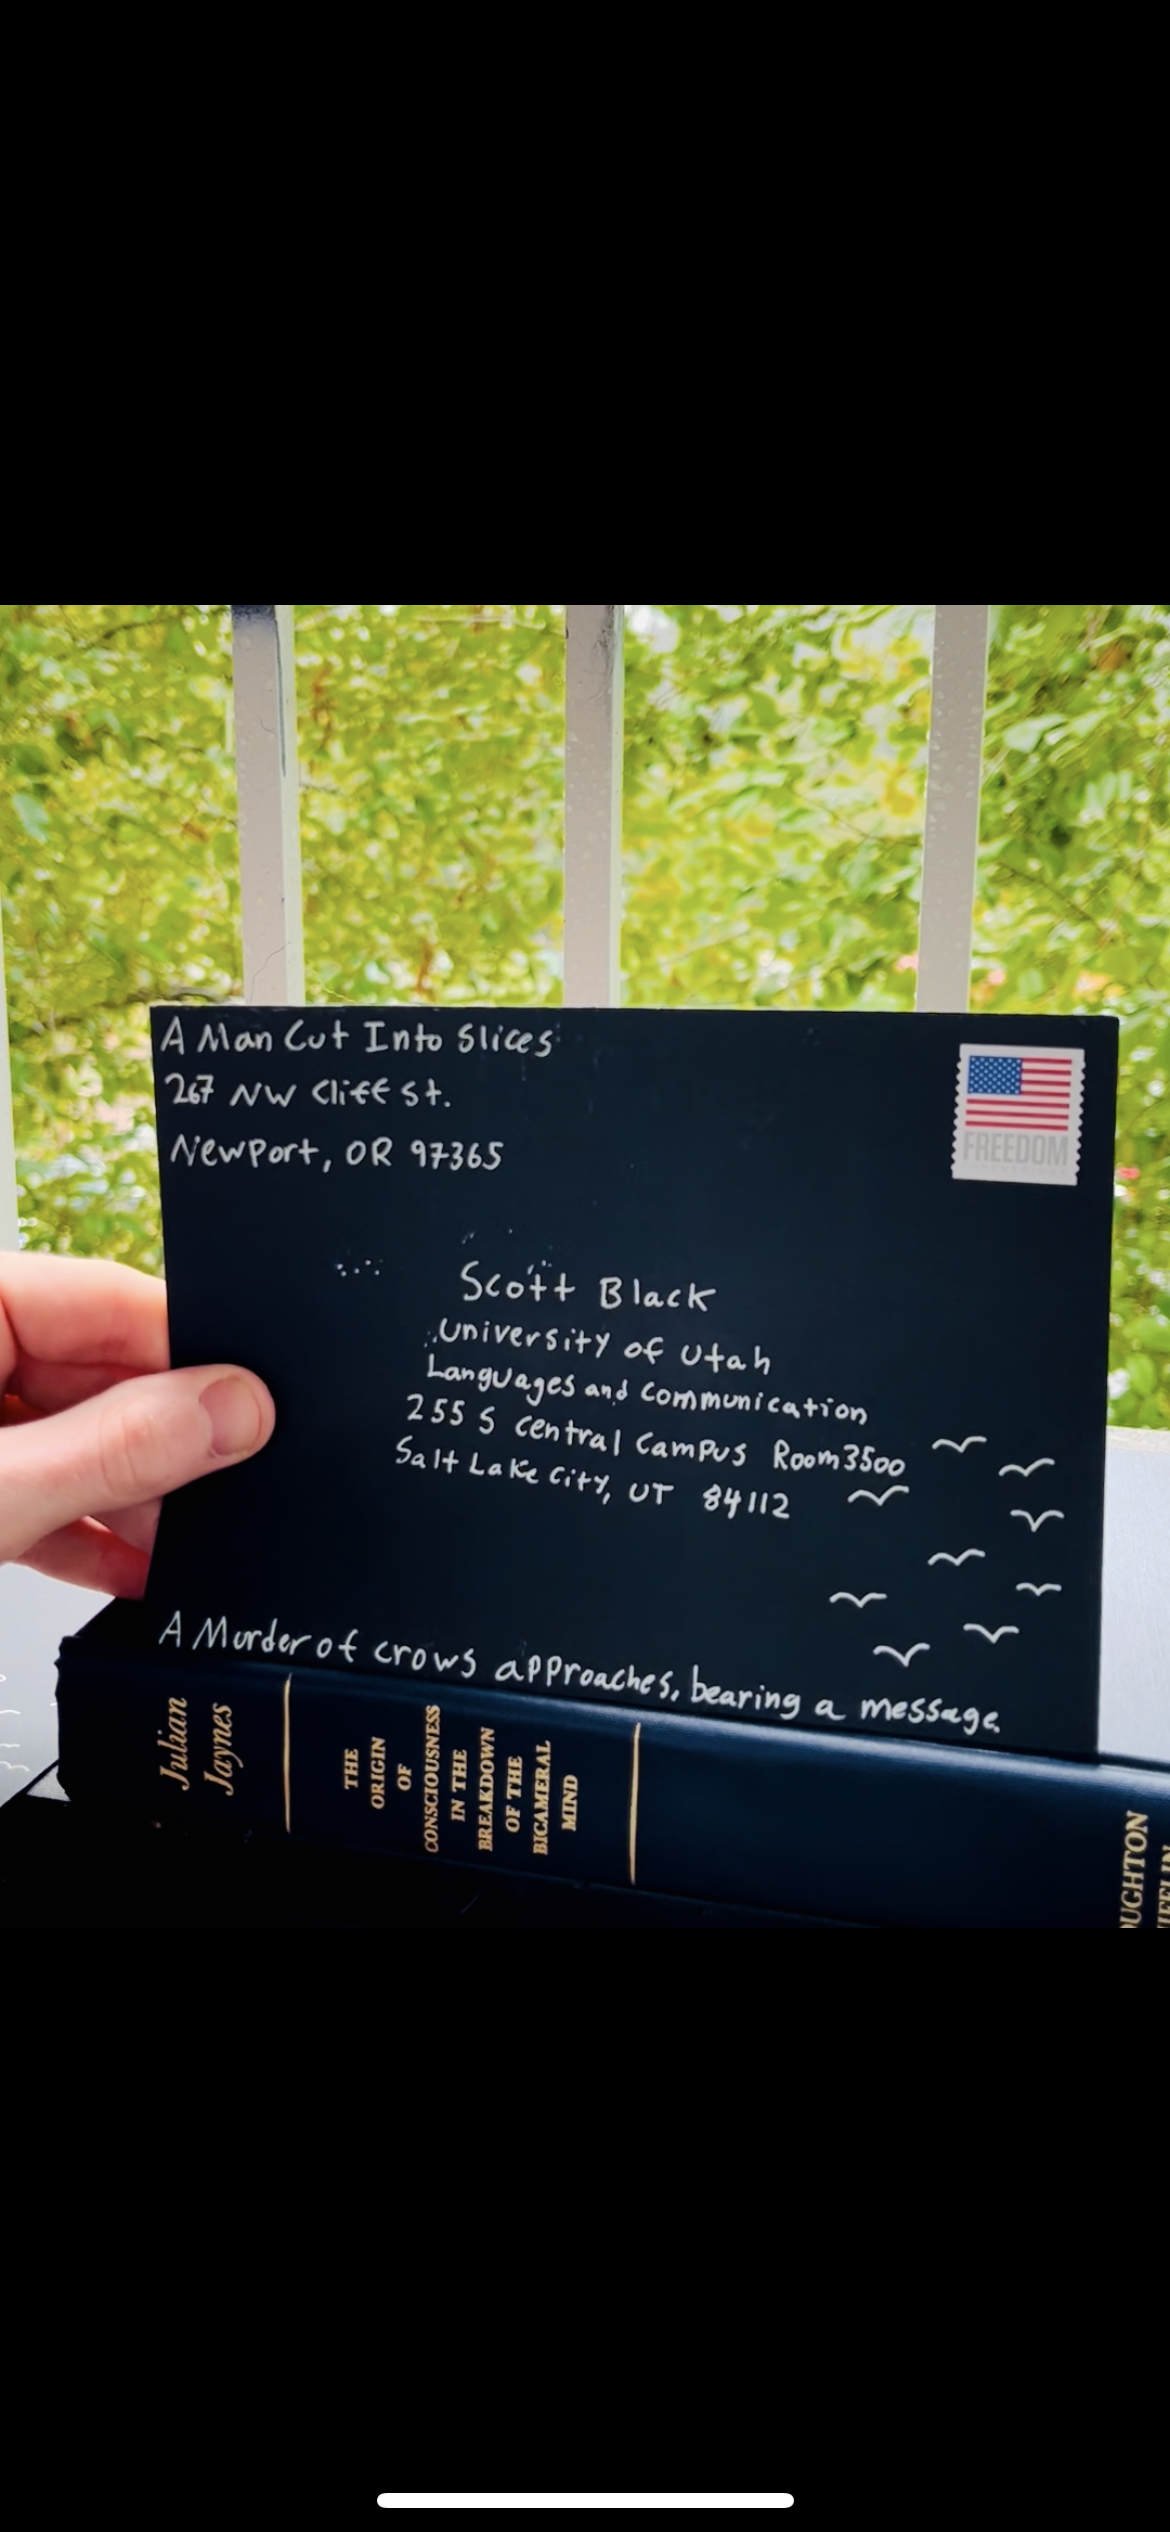 A Man Cut Into Slices
267 NW Cliff St.
Newport, OR 97365
FREEDOM
Scott Black
University of Utah
Languages and Communication
255 S Central Campus Room 3500
Salt Lake City, UT 84112
A Murder of crows approaches, bearing a message.
Julian
Jaynes
THE
ORIGIN
OF
CONSCIOUSNESS
IN THE
BREAKDOWN
OF THE
BICAMERAL
MIND